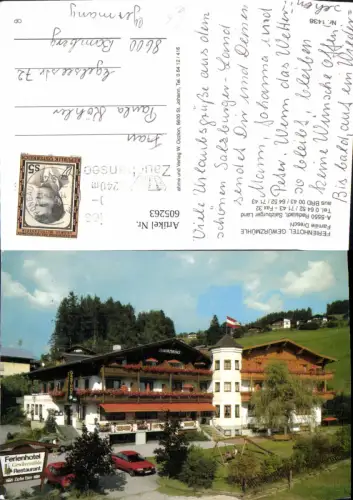 Viele Urlaubsgrüße aus dem
schönen Salzburger-Land
sendet Dir und Deinen
Mann, Johanna und
Peter. Wenn das Wetter
so bleibt, bleiben
keine Wünsche offen.
Bis bald, auf ein Wieder
sehen!
Nr. 1438
FERIENHOTEL GEWÜRZMÜHLE
Familie Dreschl
A-5550 Radstadt, Salzburger Land
Tel. 0 64 52 / 71 43 - Fax 32
aus BRD 00 43 / 64 52 / 71 43
Artikel Nr.
605263
Frau
Paula Köhler
72
8600 Bamberg
Germany
S5
REPUBLIK ÖSTERREICH
Zauchensee
Ferienhotel
Gewürzmühle
Restaurant